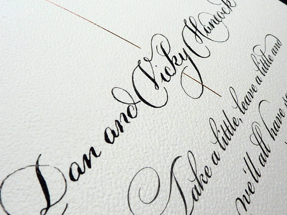 Dan and Vicky Hancock
Take a little, leave a little and
we'll all have